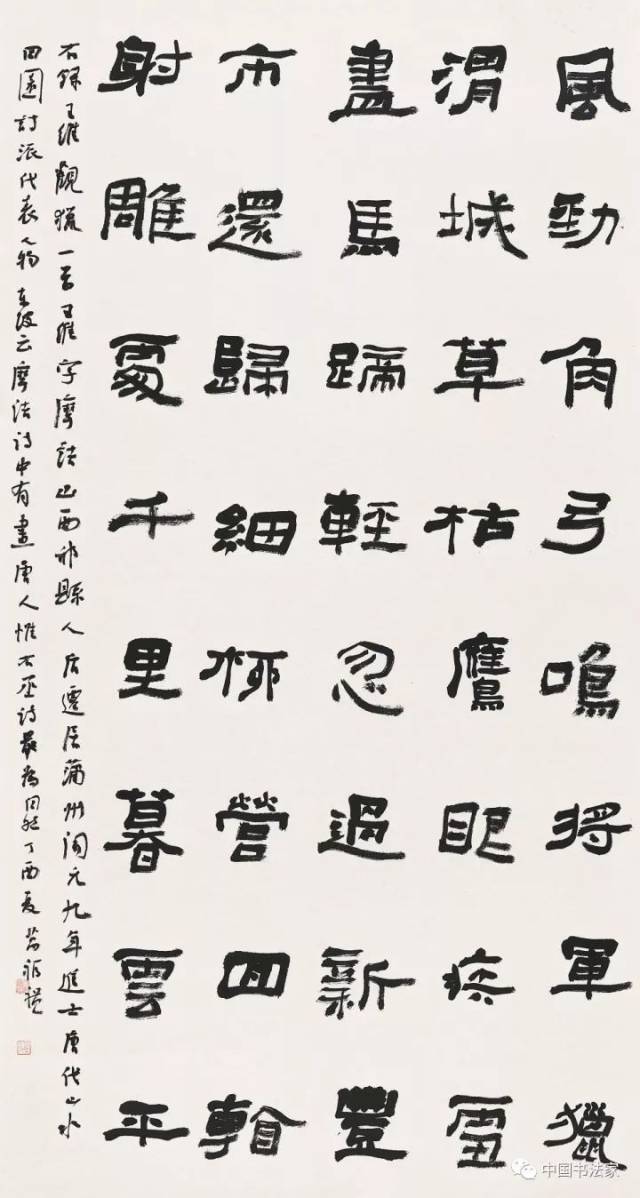 風勁角弓鳴將軍獵
渭城草枯鷹眼疾雪
盡馬蹄輕忽過新豐
市還歸細柳營回看
射雕處千里暮雲平
右錄王維觀獵一首王維字摩詰山西祁縣人后遷居蒲州開元九年進士唐代山水
田園詩派代表人物東坡云摩詰詩中有畫唐人惟右丞詩最為丁酉夏
中国书法家